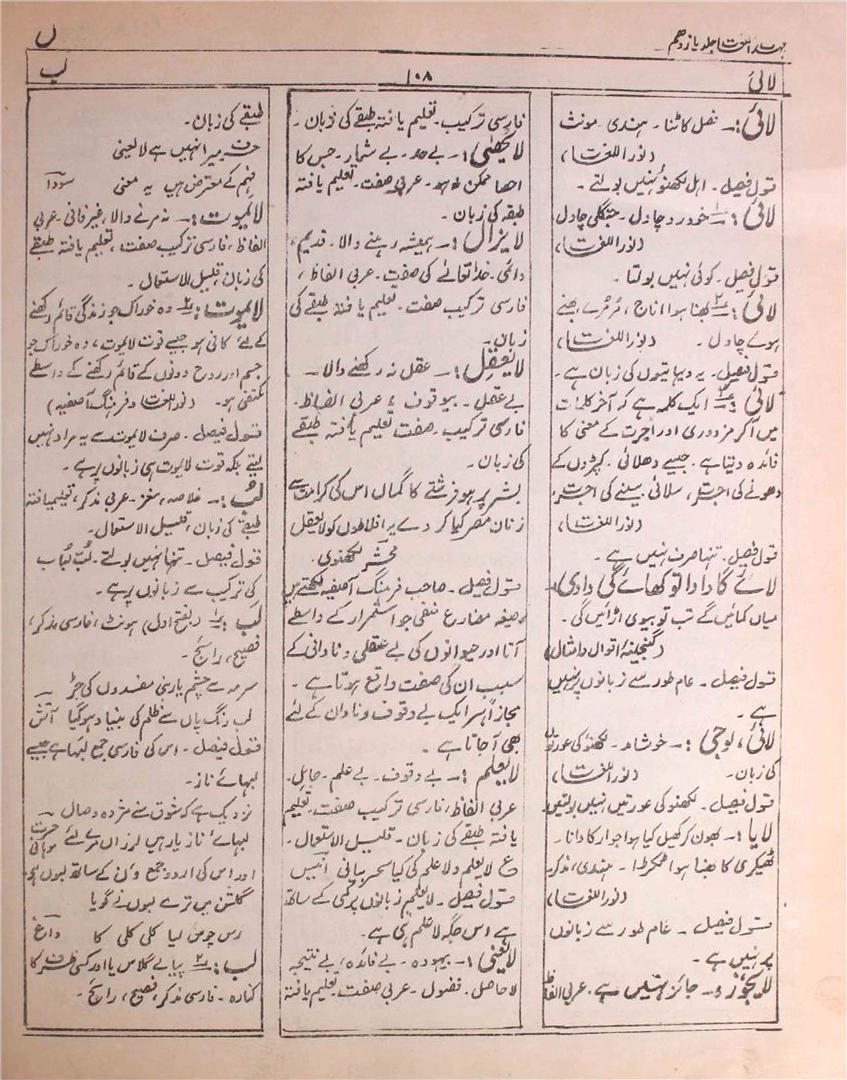 مہذب اللغات جلد یازدہم
ل
لائی
۱۰۸
لب
لائی :۔ فصل کاٹنا۔ ہندی مونث
(نوراللغات)
قول فیصل۔ اہل لکھنؤ نہیں بولتے۔
لائی :۔ ۱؎ خود رو چاول۔ جنگلی چاول
(نوراللغات)
قول فیصل۔ کوئی نہیں بولتا۔
لائی :۔ ۲؎ بھنا ہوا اناج، مُرمُرے، بھنے
ہوئے چاول۔ (نوراللغات)
قول فیصل۔ یہ دیہاتیوں کی زبان ہے۔
لائی :۔ ۳؎ ایک کلمہ ہے کہ آخر کلمات
میں آکر مزدوری اور اجرت کے معنی کا
فائدہ دیتا ہے۔ جیسے دھلائی۔ کپڑوں کے
دھونے کی اجرت، سلائی سینے کی اجرت،
(نوراللغات)
قول فیصل۔ تنہا صرف نہیں ہے۔
لائے گا دادا تو کھائے گی دادی،
میاں کمائیں گے تب تو بیوی اڑائیں گی۔
(گنجینۂ اقوال و امثال)
قول فیصل۔ عام طور سے زبانوں پر نہیں
ہے۔
لائی، لوجی :۔ خوشامد۔ لکھنؤ کی عورتوں
کی زبان۔ (نوراللغات)
قول فیصل۔ لکھنؤ کی عورتیں نہیں بولتیں
لایا :۔ بھون کر کھیل کیا ہوا جوار کا دانا۔
ٹھیکری کا بھنا ہوا ٹکڑا۔ ہندی، مذکر
(نوراللغات)
قول فیصل۔ عام طور سے زبانوں
پر نہیں ہے۔
لایجوز :۔ جائز نہیں ہے۔ عربی الفاظ
فارسی ترکیب۔ تعلیم یافتہ طبقے کی زبان۔
لایحصیٰ :۔ بے حد۔ بے شمار۔ جس کا
احصا ممکن نہ ہو۔ عربی صفت۔ تعلیم یافتہ
طبقہ کی زبان۔
لایزال :۔ ہمیشہ رہنے والا۔ قدیم،
دائمی۔ خدا تعالےٰ کی صفت۔ عربی الفاظ،
فارسی ترکیب صفت۔ تعلیم یافتہ طبقے کی
زبان۔
لایعقل :۔ عقل نہ رکھنے والا۔
بے عقل۔ بیوقوف، عربی الفاظ۔
فارسی ترکیب۔ صفت تعلیم یافتہ طبقے
کی زبان۔
بشر پر ہو فرشتے کا گماں اس کی کرامت سے
زنان مصر کیا کر دے یہ افلاطوں کو لایعقل
محشر لکھنوی
قول فیصل۔ صاحب فرہنگ آصفیہ لکھتے ہیں
صیغہ مضارع منفی جو استمرار کے واسطے
آتا اور حیوانوں کی بے عقلی و نادانی کے
سبب ان کی صفت واقع ہوتا ہے۔
مجازاً ہر ایک بے وقوف و نادان کے لئے
بھی آجاتا ہے۔
لایعلم :۔ بے وقوف۔ بے علم۔ جاہل۔
عربی الفاظ، فارسی ترکیب صفت۔ تعلیم
یافتہ طبقے کی زبان۔ قلیل الاستعمال۔
ع لایعلم ولا علم کی کیا سحر بیانی انیس
قول فیصل۔ لایعلم زبانوں پر کمی کے ساتھ
ہے اس جگہ لاعلم ہی ہے۔
لایعنی :۔ بیہودہ۔ بے فائدہ، بے نتیجہ
لاحاصل۔ فضول۔ عربی صفت۔ تعلیم یافتہ
طبقے کی زبان۔
حرف میرا نہیں ہے لایعنی
فہم کے معترض ہیں بے معنی سودا
لایموت :۔ نہ مرنے والا، غیر فانی۔ عربی
الفاظ، فارسی ترکیب صفت، تعلیم یافتہ طبقے
کی زبان، قلیل الاستعمال۔
لایموت :۔ ۲؎ وہ خوراک جو زندگی قائم رکھنے
کے لئے کافی ہو جیسے قوت لایموت، وہ خوراک جو
جسم اور روح دونوں کے قائم رکھنے کے واسطے
مکتفی ہو۔ (نوراللغات و فرہنگ آصفیہ)
قول فیصل۔ صرف لایموت سے یہ مراد نہیں
لیتے بلکہ قوت لایموت ہی زبانوں پر ہے۔
لُب :۔ خلاصہ، مغز۔ عربی مذکر، تعلیم یافتہ
طبقے کی زبان، قلیل الاستعمال۔
قول فیصل۔ تنہا نہیں بولتے۔ لُبِّ لُباب
کی ترکیب سے زبانوں پر ہے۔
لب :۔ ۱؎ (بفتح اول) ہونٹ، فارسی مذکر،
فصیح، رائج۔
سرمہ سے چشم یار بنی مفسدوں کی جڑ
لب رنگ پاں سے ظلم کی بنیاد ہو گیا آتش
قول فیصل۔ اس کی فارسی جمع لبہا ہے جیسے
لبہائے ناز۔
نزدیک ہے کہ شوق سنے مژدہ وصال
لبہائے ناز یار ہیں لرزاں مرے لئے حسرت موہانی
اور اس کی اردو جمع و ں کے ساتھ لبوں ہے۔
گلشن میں ترے لبوں نے گویا
رس چوس لیا کلی کلی کا داغ
لب :۔ ۲؎ پیالے گلاس یا اور کسی ظرف کا
کنارہ۔ فارسی مذکر، فصیح، رائج۔